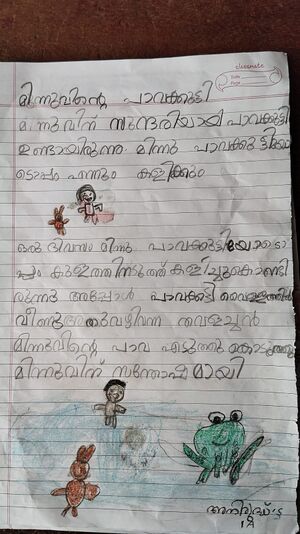 classmate
Date
Page
മിന്നുവിന്റെ പാവക്കുട്ടി
മിന്നുവിന് സുന്ദരിയായി പാവക്കുട്ടി
ഉണ്ടായിരുന്നു മിന്നു പാവക്കുട്ടിയോ
ടൊപ്പം എന്നും കളിക്കും
ഒരു ദിവസം മിന്നു പാവക്കുട്ടിയോടൊ
പ്പം കുളത്തിനടുത്ത് കളിച്ചുകൊണ്ടി
രുന്നു അപ്പോൾ പാവക്കുട്ടി വെള്ളത്തിൽ
വീണു അതുവഴിവന്ന തവളച്ചൻ
മിന്നുവിന്റെ പാവ എടുത്തു കൊടുത്തു
മിന്നുവിന് സന്തോഷമായി
അനിരുദ്ധ്
1 A